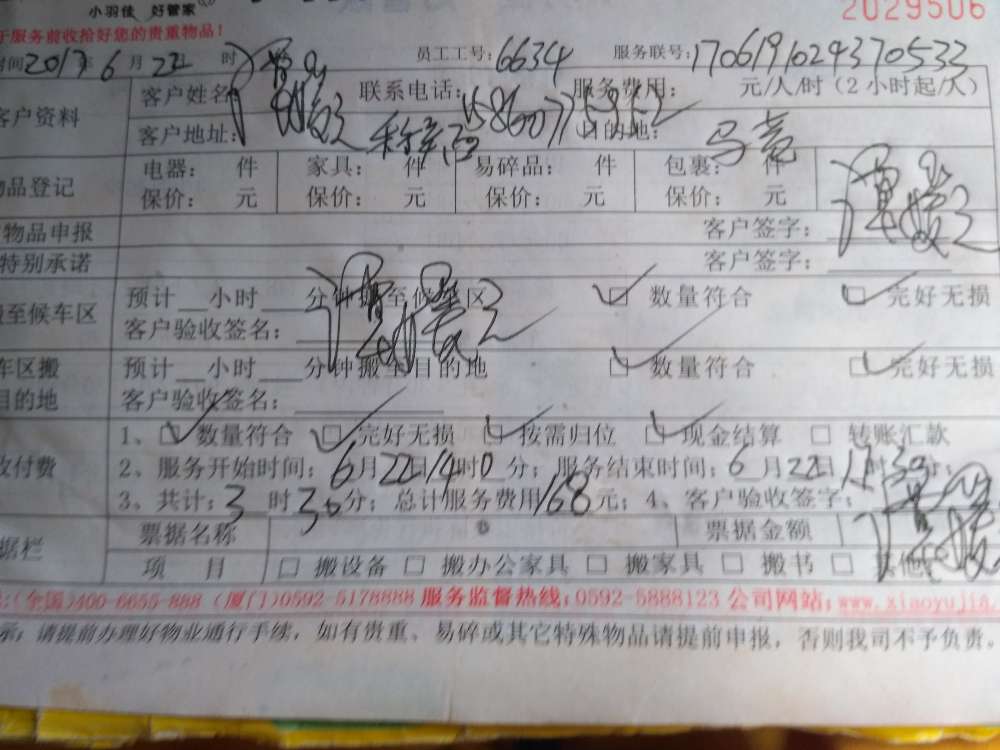 小羽佳 好管家
2029506
于服务前收拾好您的贵重物品!
时间2017年6月22 时 员工工号:6634 服务联号:1706191624370533
客户资料 客户姓名 联系电话: 服务费用: 元/人/时(2小时起/人)
客户地址: 目的地:
物品登记 电器: 件 家具: 件 易碎品: 件 包裹: 件
保价: 元 保价: 元 保价: 元 保价: 元
物品申报 客户签字:
特别承诺 客户签字:
至候车区 预计__小时___分钟搬至候车区 ☑ 数量符合 ☑ 完好无损
客户验收签名:
车区搬 预计__小时___分钟搬至目的地 ☑ 数量符合 ☑ 完好无损
目的地 客户验收签名:
1、☑ 数量符合 ☑ 完好无损 ☑ 按需归位 ☑ 现金结算 □ 转账汇款
收付费 2、服务开始时间:6月22日14时0分;服务结束时间:6月22日17时30分;
3、共计:3时30分;总计服务费用168元;4、客户验收签字:
据栏 票据名称 票据金额
项 目 □ 搬设备 □ 搬办公家具 □ 搬家具 □ 搬书 □ 其他
:(全国)400-6655-888 (厦门)0592-5178888 服务监督热线:0592-5888123 公司网站:www.xiaoyujia.
示:请提前办理好物业通行手续,如有贵重、易碎或其它特殊物品请提前申报,否则我司不予负责。